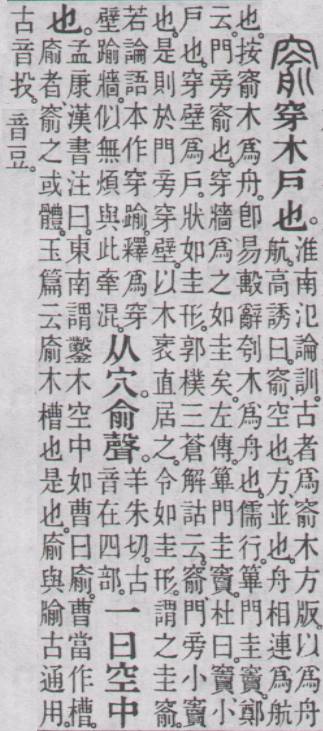 窬穿木戶也。淮南氾論訓。古者爲窬木方版。以爲舟
航。高誘曰。窬、空也。方、並也。舟相連爲航
也。按窬木爲舟。卽易毄辭刳木爲舟也。儒行。篳門圭竇。鄭
云。門旁窬也。穿牆爲之如圭矣。左傳。篳門圭竇。杜曰。竇、小
戶也。穿壁爲戶。狀如圭形。郭樸三蒼解詁云。窬、門旁小竇
也。是則於門旁穿壁。以木衺直居之。令如圭形。謂之圭窬。
若論語本作穿踰。釋爲穿
壁踰牆。似無煩與此牽混。
从穴俞聲。羊朱切。古
音在四部。
一曰空中
也。孟康漢書注曰。東南謂鑿木空中如曹曰㢏。曹當作槽。
㢏者、窬之或體。玉篇云㢏木槽也是也。㢏與牏古通用。
古音投。音豆。